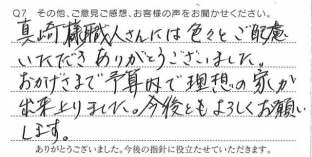 Q7 その他、ご意見ご感想、お客様の声をお聞かせください。
真崎様職人さんには色々とご配慮
いただきありがとうございました。
おかげさまで予算内で理想の家が
出来上りました。今後ともよろしくお願い
します。
ありがとうございました。今後の指針に役立たせていただきます。